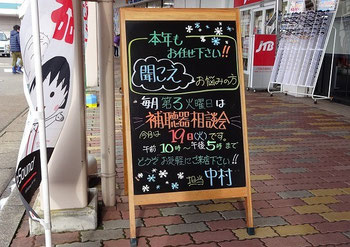 本年も
お任せ下さい!!
聞こえ
お悩みの方
毎月第3火曜日は
補聴器相談会
今月は19日(火)です。
午前10時〜午後5時まで
どうぞお気軽にご来店下さい!!
担当 中村
JTB
Sound